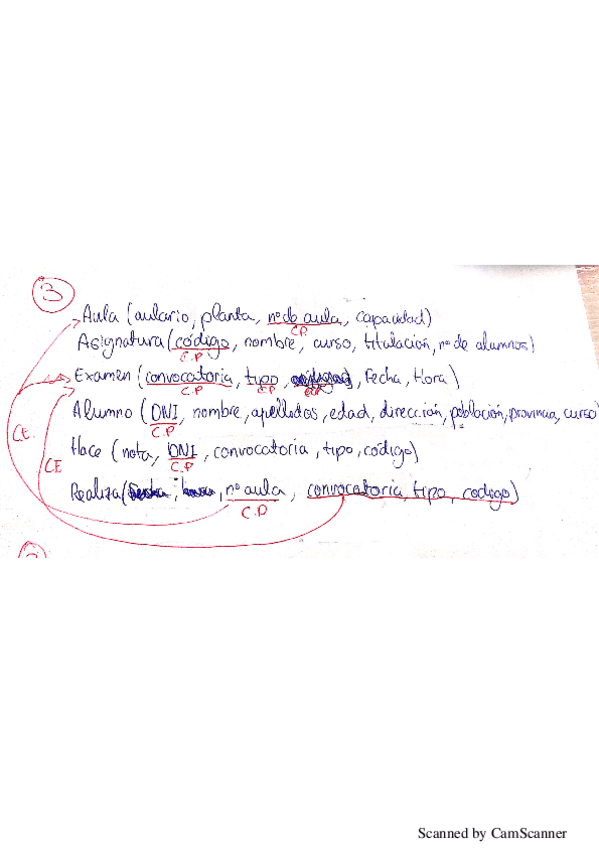 3
Aula (aulario, planta, nº de aula, capacidad)
C.P
Asignatura (código, nombre, curso, titulación, nº de alumnos)
C.P
Examen (convocatoria, tipo, fecha, Hora)
C.P C.P C.P
Alumno (DNI, nombre, apellidos, edad, dirección, población, provincia, curso)
C.P
CE.
Hace (nota, DNI, convocatoria, tipo, código)
C.P
CE
Realiza (nº aula, convocatoria, tipo, codigo)
C.P
Scanned by CamScanner